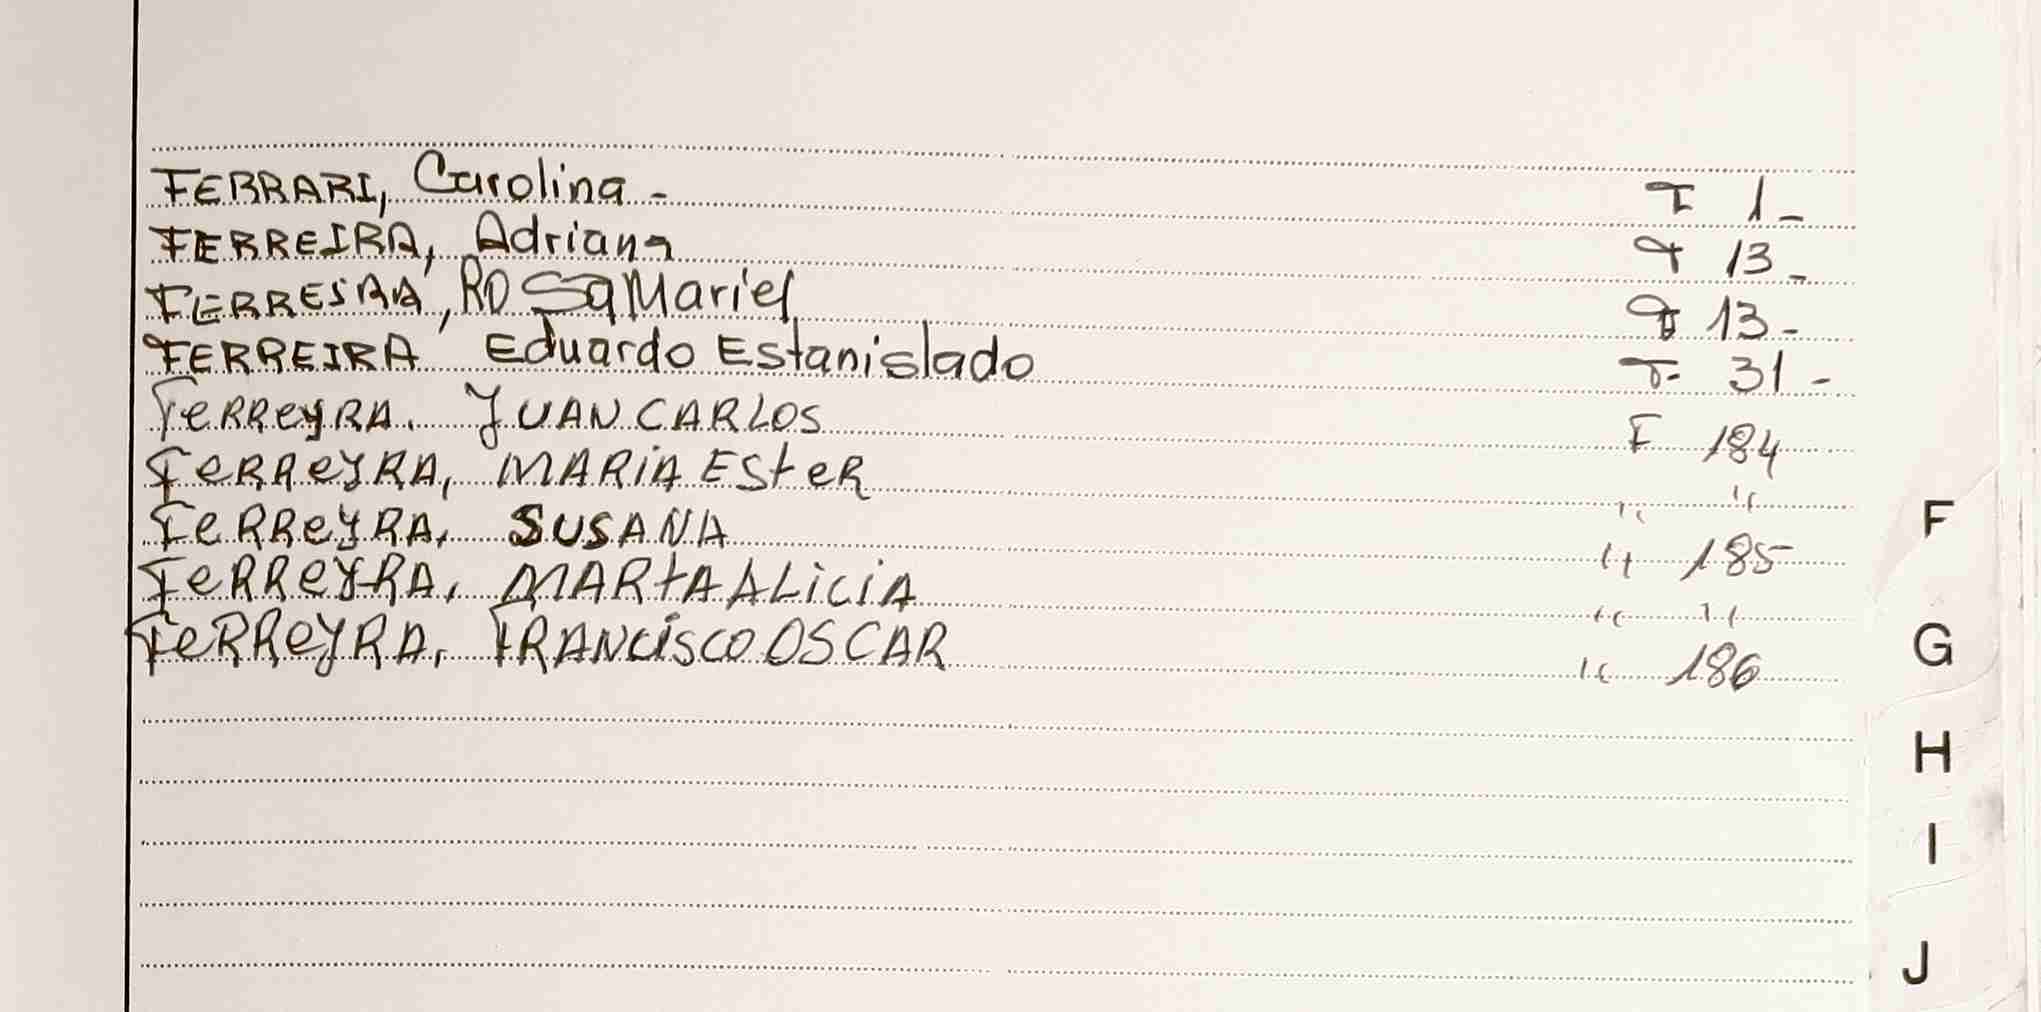 FERRARI, Carolina - F 1-
FERREIRA, Adriana F 13-
FERREIRA, ROSa Mariel F 13-
FERREIRA Eduardo Estanislado F 31-
FeRReyRA. JUAN CARLOS F 184
FeRReyRA, MARiA ESteR " "
FeRReyRA, SUSANA " 185
FeRReyRA, MARtA ALiCiA " "
FeRReyRA, FRANCiSCO OSCAR " 186
F
G
H
I
J